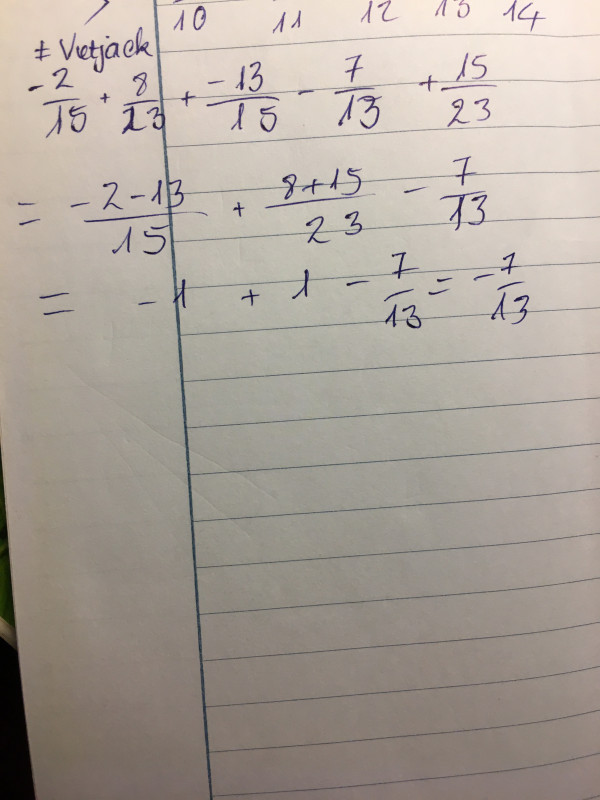 10 11 12 13 14
# Vietjack
-2/15 + 8/23 + -13/15 - 7/13 + 15/23
= -2-13/15 + 8+15/23 - 7/13
= -1 + 1 - 7/13 = -7/13